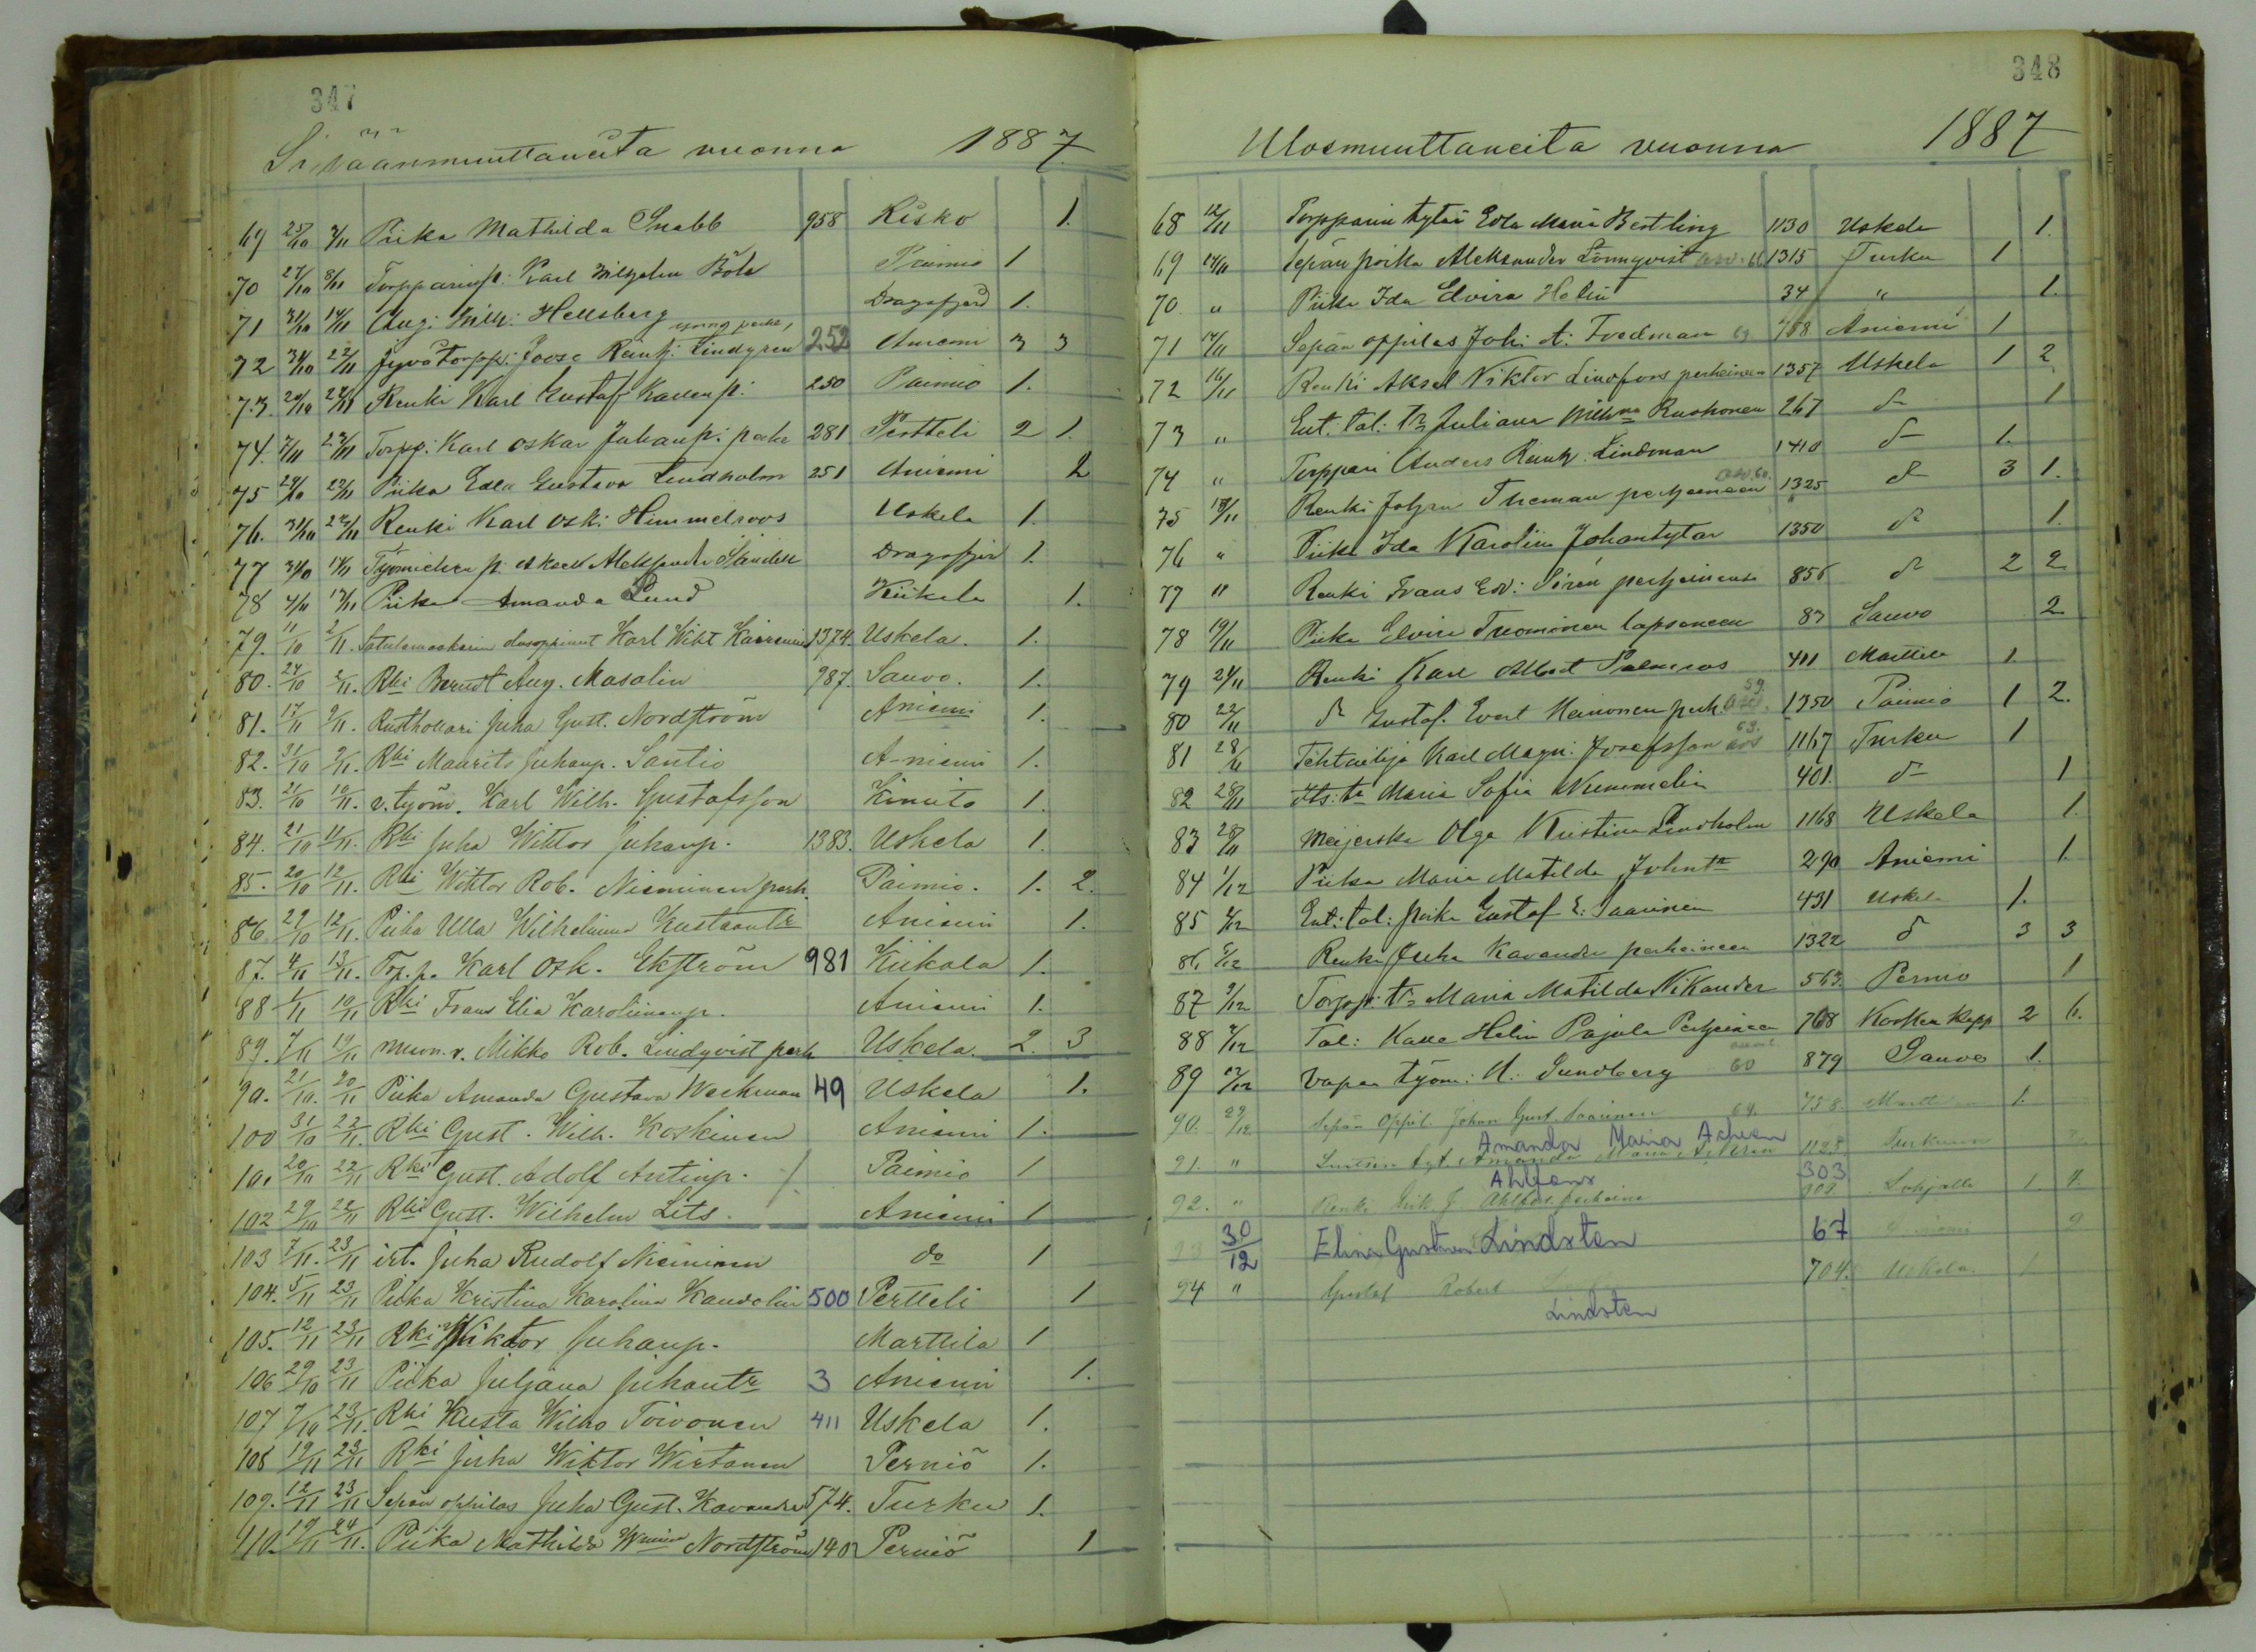 347
Sisäänmuuttaneita vuonna 1887
69 25/10 3/11 Piika Mathilda Snabb 958 Kisko 1.
70 27/10 8/11 Torpparinp. Karl Wilhelm Paimio 1
71 31/10 14/11 Aug. Wilh. Hellsberg Dragsfjerd 1.
72 31/10 22/11 Joose Lindgren 252 Aniemi 3 3
73. 20/10 22/11 Renki Karl Gustaf Kallenp. 250 Paimio 1.
74. 7/11 23/11 Torpp. Karl Oskar Juhanp. perhe 281 Pertteli 2 1.
75 29/10 23/11 Piika Edla Gustava Lindholm 251 Aniemi 2
76. 31/10 23/11 Renki Karl Osk. Himmelroos Uskela 1.
77 Työmiehen p. Oskar Aleksander Sandell Dragsfjer 1.
78 4/11 17/11 Piika Amanda Lund Kiikala 1.
79. 11/10 2/11. Satulamaakarin Karl Wikt 1374. Uskela. 1.
80. 24/10 2/11. Rki Berndt Aug. Masalin 987. Sauvo. 1.
81. 17/11 9/11. Rusthollari Juha Gust. Nordström Aniemi 1.
82. 31/10 9/11. Rki Maurits Juhanp. Santio Aniemi 1.
83. 21/10 10/11. v. työm. Karl Wilh. Gustafsson Kimito 1.
84. 21/10 11/11. Rki Juha Wiktor Juhanp. 1383. Uskela 1.
85. 20/10 12/11. Rki Wiktor Rob. Nieminen perh. Paimio. 1. 2.
86. 29/10 12/11. Piika Ulla Wilhelmina Kustaantr Aniemi 1.
87. 4/11 13/11. Trp. p. Karl Osk. Ekström 981 Kiikala 1.
88 1/11 19/11 Rki Frans Elia Karoliinanp. Aniemi 1.
89. 7/11 19/11 muon. v. Mikko Rob. Lindqvist perh Uskela. 2. 3
90. 21/10. 20/11 Piika Amanda Gustava Weckman 49 Uskela 1.
100 31/10 22/11. Rki Gust. Wilh. Koskinen Aniemi 1.
101 20/10 22/11 Rki Gust. Adolf Antinp. Paimio 1
102 29/10 22/11 Rki Gust. Wilhelm Lits. Aniemi 1
103 7/11. 23/11 irt. Juha Rudolf Nieminen do 1
104. 5/11 23/11 Piika Kristina Karolina Kandolin 500 Pertteli 1
105. 12/11 23/11 Rki Wiktor Juhanp. Marttila 1
106 29/10 23/11 Piika Juljana Juhantr 3 Aniemi 1.
107 7/10 23/11. Rki Kusta Wilho Toivonen 411 Uskela 1.
108 19/11 23/11 Rki Juha Wiktor Wirtanen Perniö 1.
109. 12/11 23/11 Sepän oppilas Juha Gust. Kavander 574. Turku 1.
110. 19/11 24/11. Piika Mathilda Wmina Nordström 140 Perniö 1
348
Ulosmuuttaneita vuonna 1887
68 12/11 Torpparin tytär Edla Maria Bestling 1130 Uskela 1.
69 14/11 Sepän poika Aleksander Lönnqvist 1315 Turku 1
70. " Piika Ida Elvira Helin 34 " 1.
71 14/11 Sepän oppilas Joh. A. Fredman 69 758 Aniemi 1
72 16/11 Renki Aksel Viktor Lindfors perheineen 1357 Uskela 1 2
73 " Ent. tal. tr Juliana Wilhna Ruohonen 267 d- 1
74 " Torppari Anders Lindman 1410 d- 1.
75 18/11 Renki Johan Theman perheineen 1325 d- 3 1.
76 " Piika Ida Karolin Johantytär 1350 d- 1.
77 " Renki Frans Edv. Sirén perheineen 856 d- 2 2
78 19/11 Piika Elvira Tuominen lapsineen 87 Sauvo 2
79 21/11 Renki Karl Albert Palmroos 411 Marttila 1
80 22/11 d- Gustaf Evert Heinonen perh 59. 1350 Paimio 1 2.
81 28/11 Tehtailija Karl Magn. Josefsson 63. 1167 Turku 1
82 28/11 Its. tr Maria Sofia Nummelin 401. d- 1
83 28/11 Meijerska Olga Kristina Lindholm 1168 Uskela 1.
84 1/12 Piika Maria Matilda Johntr 290 Aniemi 1.
85 2/12 Ent. tal. poika Gustaf E. Saarinen 431 Uskela 1.
86 5/12 Renki Juha Kavander perheineen 1322 d 3 3
87 9/12 Torpp. tr Maria Matilda Nikander 563. Pernio 1
88 9/12 Tal: Kalle Helin Pajula Perheineen 768 Kosken Kapp 2 6.
89 Vapa työm: A. Sundberg 60 879 Sauvo 1.
90. 29/12 Sepän Oppil. Johan Gust. Saarinen 69. 758. Martti 1.
91. " Amanda Maria 1128 Turkuun
92. " Renki Erik J. Ahlfors perheine 303 Lohjalle 1. 4.
93 30/12 Elina Gustava Lindsten 67
94 " Gustaf Robert Lindsten 704. Uskela 1